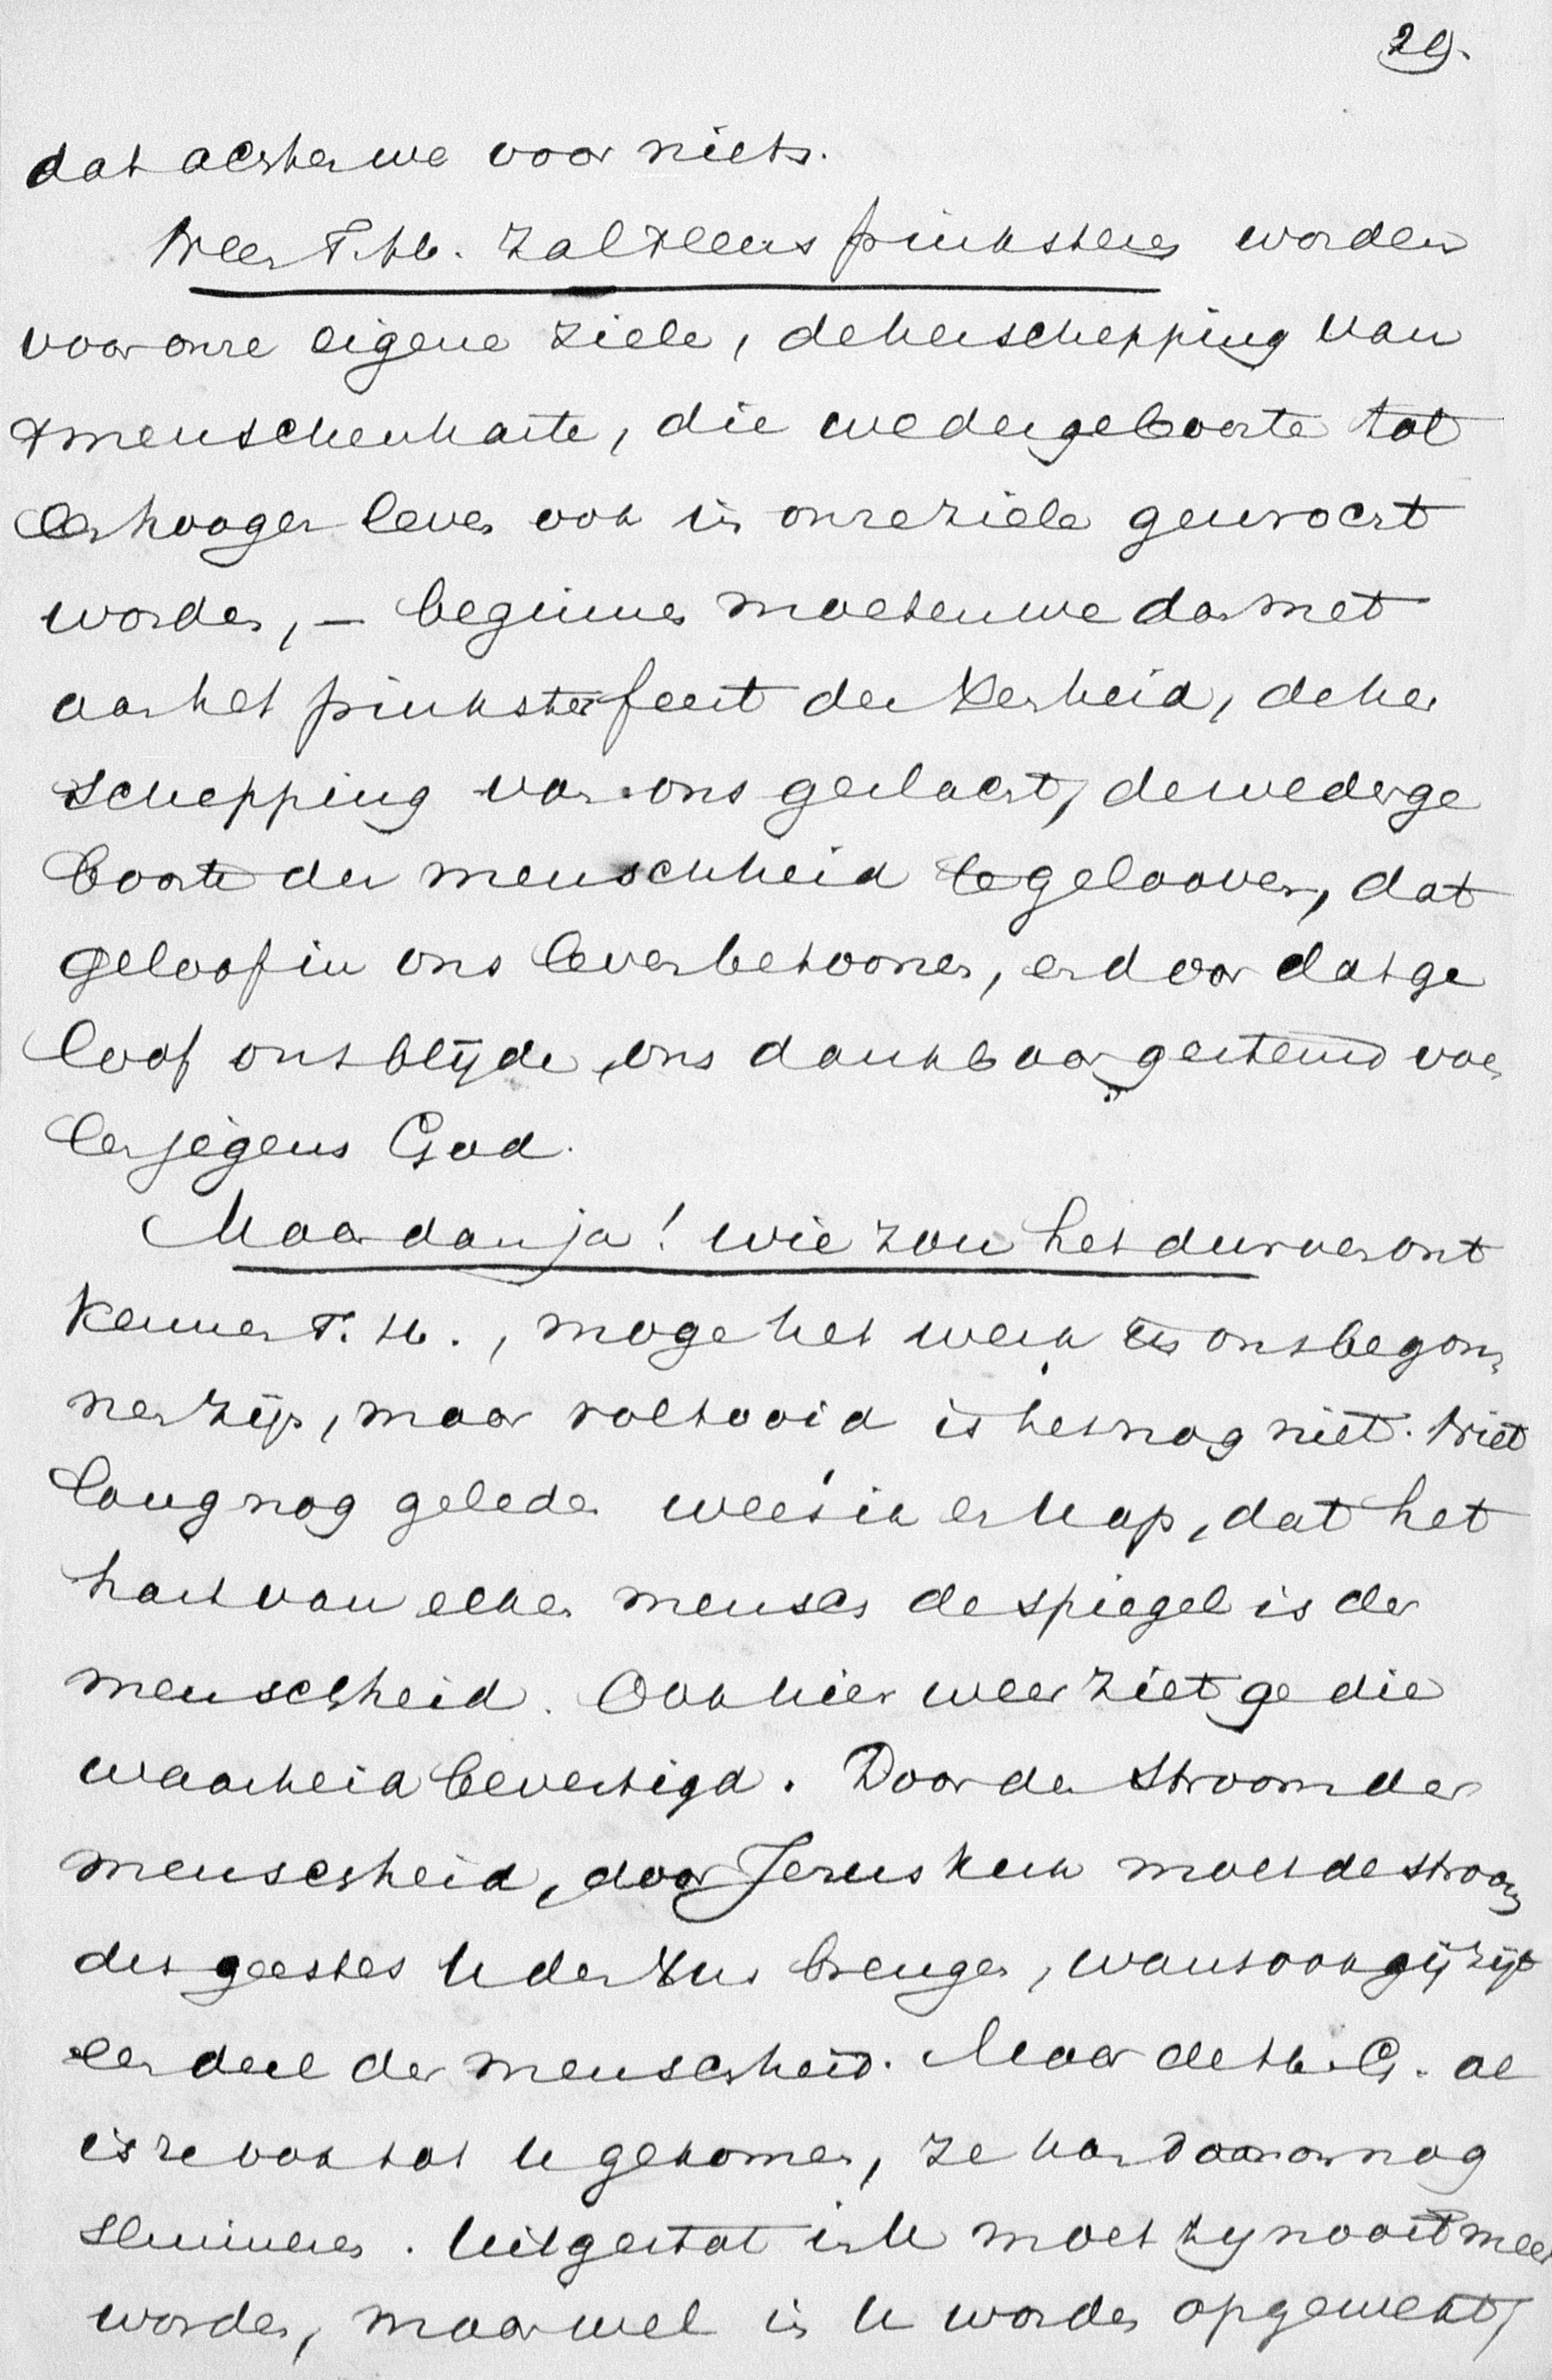 29.
dat achten we voor niets.
Neen T. H. zal 't eens pinksteren worden
voor onze eigene ziele, de herschepping van
't menschenharte, die wedergeboorte tot
een hooger leven ook in onze ziele gewrocht
worden, — beginnen moeten we dan met
aan het pinksterfeest der Kerheid, de her
schepping van ons geslacht, de wederge
boorte der menschheid te gelooven, dat
geloof in ons leven betoonen, en door dat ge
loof ons blijde, ons dankbaar gestemd voe
len jegens God.
Maar dan ja! wie zou het durven ont
kennen T. H., moge het werk in ons begon
nen zijn, maar voltooid is het nog niet. Niet
lang nog geleden wees ik er U op, dat het
hart van elken mensch de spiegel is der
menschheid. Ook hier weer ziet ge die
waarheid bevestigd. Door den stroom der
menschheid, door Jezus kerk moet de stroom
des geestes U den bringen, want ook gij zijt
een deel der menschheid. Maar de H. G. al
is ze ook tot U gekomen, ze kan daarom nog
sluimeren. Uitgestort in U moet zij nooit meer
worden, maar wel in U worden opgewekt,